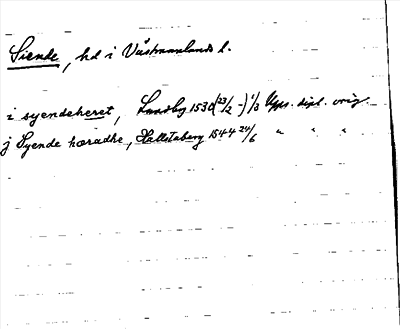 Siende, hd i Västmanlands l.
i syendeheret, Lundby 1530(23/2 -) 1/3 Upps. dipl. orig.
j Syende haradhe, Hallstaberg 1544 24/6 " " "